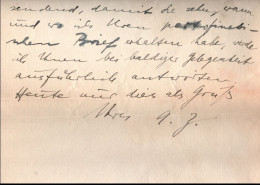 sendend, damit Sie sehen, wann
und wo ich Ihren
schen Brief erhalten habe, werde
ich Ihnen bei baldiger Gelegenheit
ausführlich antworten.
Heute nur dies als Gruß
Ihres A. Z.